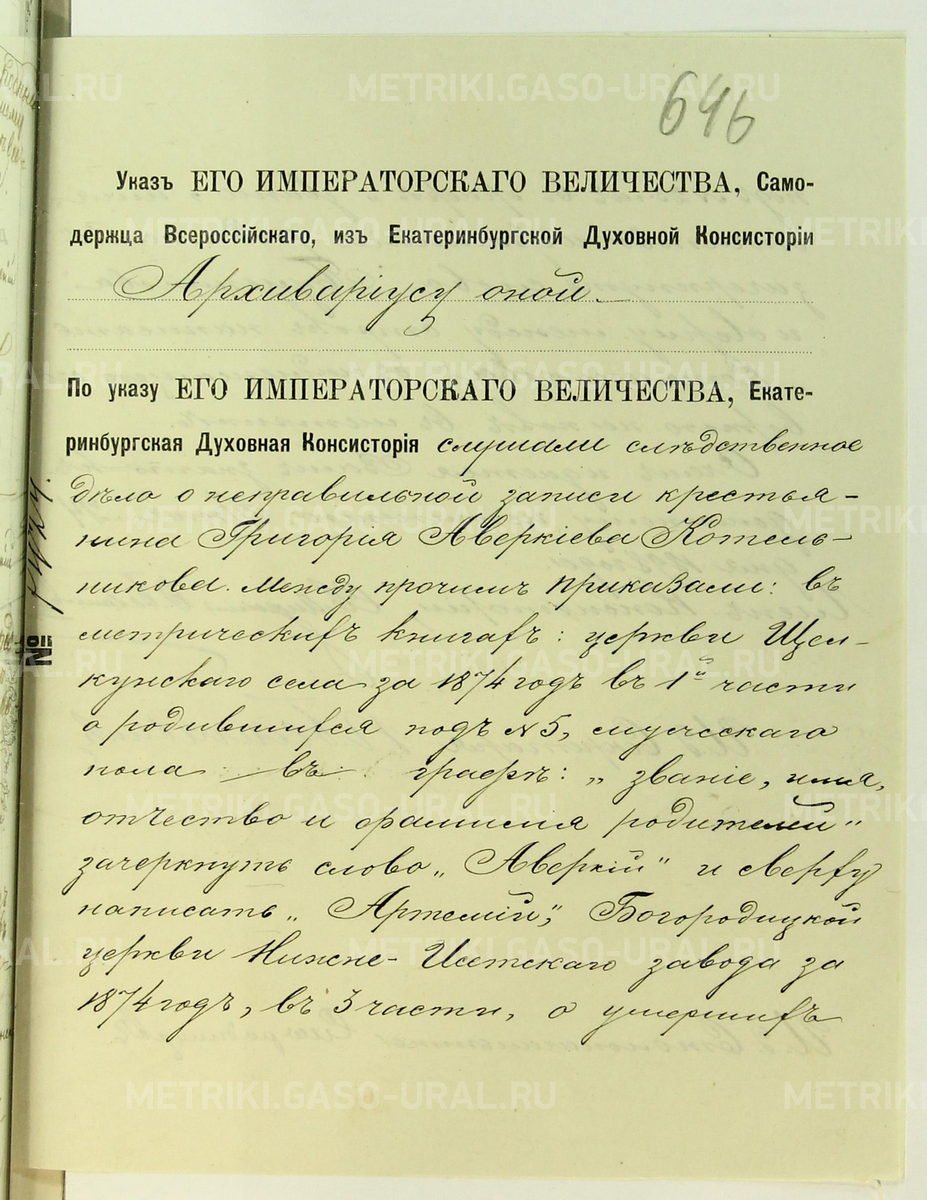 646
Указъ ЕГО ИМПЕРАТОРСКАГО ВЕЛИЧЕСТВА, Само-
держца Всероссійскаго, изъ Екатеринбургской Духовной Консисторіи
Архиваріусу оной.
По указу ЕГО ИМПЕРАТОРСКАГО ВЕЛИЧЕСТВА, Екате-
ринбургская Духовная Консисторія слушали слѣдственное
дѣло о неправильной записи крестья-
нина Григорія Аверкіева Котель-
никова. Между прочимъ приказали: въ
метрическихъ книгахъ: церкви Щел-
кунскаго села за 1874 годъ въ 1й части
о родившихся подъ №5, мужескаго
пола въ графѣ: „званіе, имя,
отчество и фамилія родителей"
зачеркнуть слово „Аверкій" и сверху
написать „Артемій", Богородицкой
церкви Нижне-Исетскаго завода за
1874 годъ, въ 3 части, о умершихъ
№
METRIKI.GASO-URAL.RU